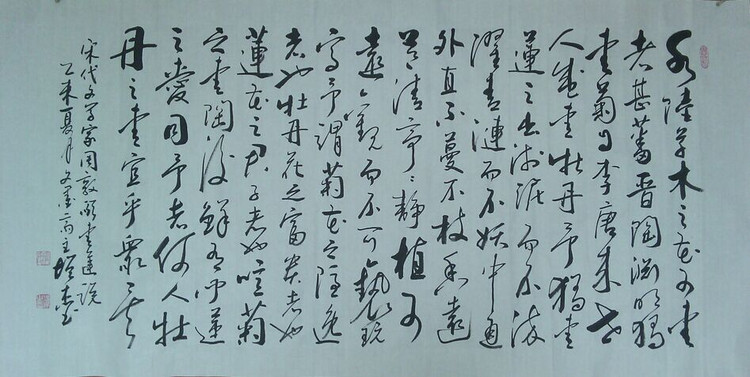 水陸草木之花可愛
者甚蕃晋陶渊明獨
愛菊自李唐来世
人盛愛牡丹予獨愛
蓮之出淤泥而不染
濯清漣而不妖中通
外直不蔓不枝香遠
益清亭亭静植可
遠觀而不可褻玩
焉予謂菊花之隱逸
者也牡丹花之富貴者也
蓮花之君子者也噫菊
之愛陶後鮮有聞蓮
之愛同予者何人牡
丹之愛宜乎衆矣
宋代文学家周敦颐愛蓮説
乙未夏月文墨斋主